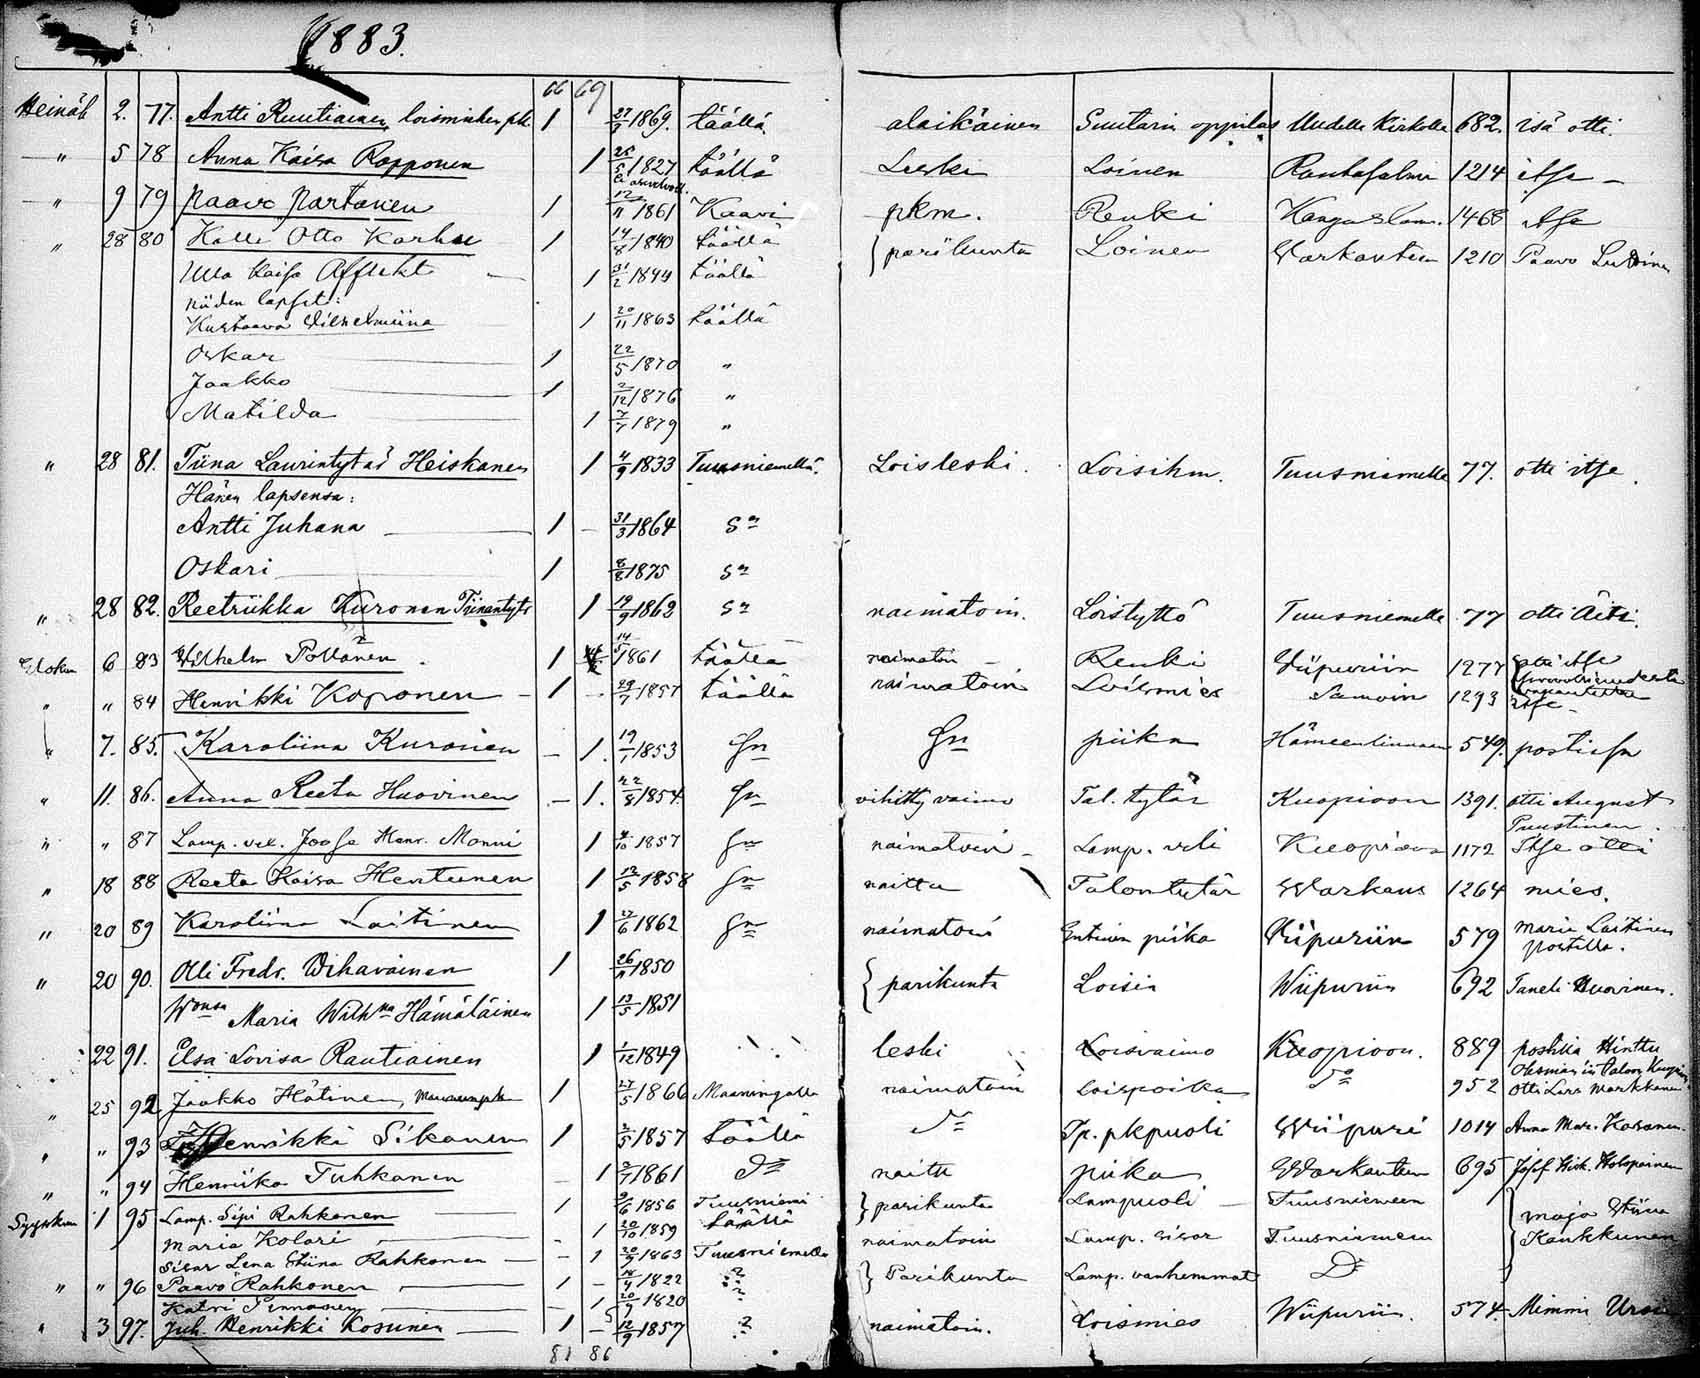 1883.
66 69
Heinäk 2. 77. Antti Ruutiainen, loismiehen pk. 1 27/9 1869. täällä alaikäinen Suutarin oppilas Uudelle Kirkolle 682. isä otti.
" 5 78 Anna Kaisa Ropponen 1 25/5 1827 täällä Leski Loinen Rantasalmi 1214 itse –
" 9 79 Paavo Partanen 1 12/11 1861 Kaavi pkm. Renki Kangaslam. 1468 itse
" 28 80 Kalle Otto Karhu 1 14/8 1840 täällä } parikunta Loinen Warkauteen 1210 Paavo
Ulla Kaisa Afflekt 1 31/2 1844 täällä
niiden lapset:
Kustaava Vilhelmiina 1 20/11 1863 täällä
Oskar 1 22/5 1870 "
Jaakko 1 2/12 1876 "
Matilda 1 7/7 1879 "
" 28 81. Tiina Laurintytär Heiskanen 1 4/9 1833 Tuusniemellä. Loisleski. Loisihm. Tuusniemelle 77. otti itse.
Hänen lapsensa:
Antti Juhana 1 – 31/3 1864 Sn
Oskari 1 8/8 1875 Sn
" 28 82. Reetriikka Kuronen Tiinantytr 1 19/9 1862 Sn naimatoin. Loistyttö Tuusniemelle 77 otti Äiti.
Eloku 6 83 Wilhelm Pollänen. 1 14/5 1861 täällä naimatoin – Renki Viipuriin 1277 otti itse
" " 84 Henrikki Koponen – 1 – 29/7 1857 täällä naimatoin Loismies Samoin 1293 itse –
" 7. 85. Karoliina Kuronen – 1. 19/1 1853 Sn Sn piika Hämeenlinnaan 549. postissa
" 11. 86. Anna Reeta Huovinen – 1. 22/8 1854 Sn vihitty vaimo Tal. tytär Kuopioon 1391. otti August
Puustinen.
" " 87 Lamp. vel. Joose Henr. Monni 1 4/10 1857 Sn naimatoin – Lamp. veli Kuopioon 1172 Itse otti
" 18 88 Reeta Kaisa Hentunen 1 12/5 1858 Sn naittu Talontytär Warkaus 1264 mies.
" 20 89 Karoliina Laitinen 1 27/6 1862 Sn naimatoin Entinen piika Viipuriin 579 Maria Laitinen
postilla.
" 20 90. Olli Fredr. Wihavainen 1 26/11 1850 { parikunta Loisia Wiipuriin 692 Taneli Huovinen.
Wonsa Maria Wilhna Hämäläinen 1 13/5 1851
" 22 91. Elsa Lovisa Rautiainen 1 1/12 1849 " leski Loisvaimo Kuopioon. 889 Hinttu
" 25 92 Jaakko Hätinen, 1 27/5 1866 Maaningalla naimatoin loispoika Do 952 Otti Lars Markkanen
" " 93 Henrikki Sikanen 1 2/5 1857 täällä Do Tp. pkpuoli Wiipuri 1014 Anna Mar. Kosonen.
" " 94 Henriika Tuhkanen – 1 3/7 1861 Do naitu piika Warkauteen 695 Josef Hnk. Holopainen
Syyskuu 1 95 Lamp. Sipi Rahkonen 1 9/6 1856 Tuusniemi } parikunta Lampuoli – Tuusniemeen } Maja Stiina
Maria Kolari 1 20/10 1859 täällä Kaukkunen
Sisar Lena Stiina Rahkonen – 1 20/9 1863 Tuusniemellä naimatoin Lamp. sisar Tuusniemeen
" " 96 Paavo Rahkonen 1 – 18/4 1822 ? } Parikunta Lamp. vanhemmat Do
Katri Pennanen – 1 20/9 1820 ?
" 3 97. Juh. Henrikki Kosunen – 1 – 12/9 1857 ? naimatoin. Loismies Wiipuriin. 574. Mimmi
81 86